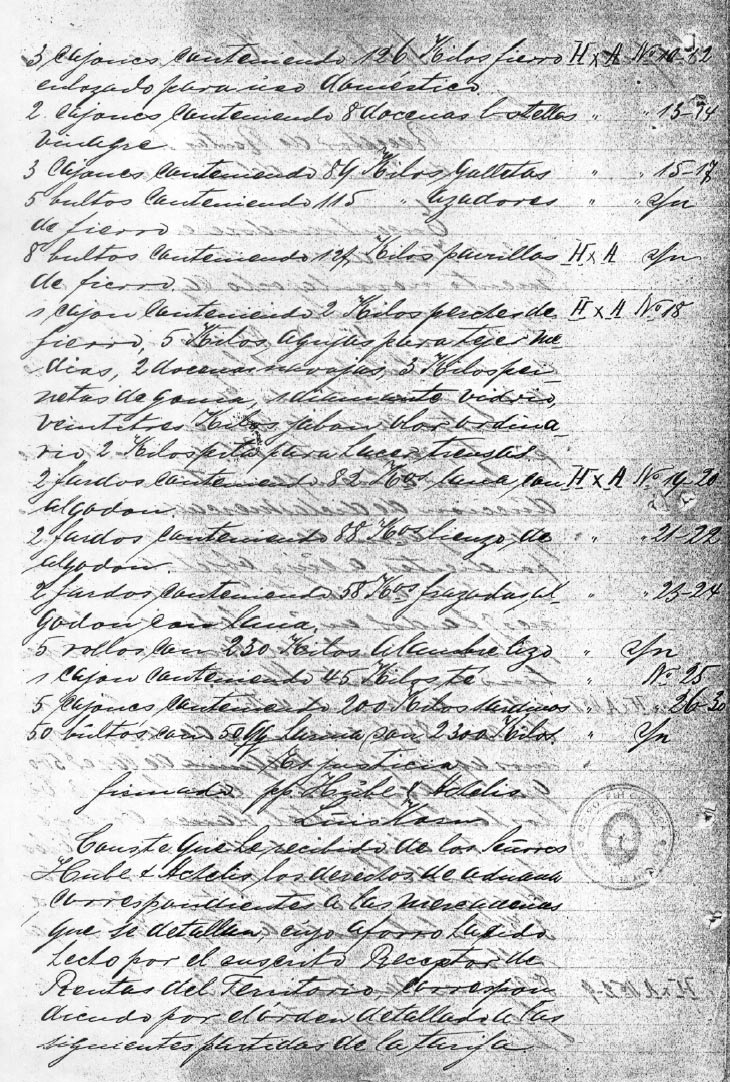 3 cajones conteniendo 126 Kilos fierro H x A No 10-12
enlozado para uso doméstico
2 cajones conteniendo 8 docenas botellas " " 13-14
vinagre
3 cajones conteniendo 84 Kilos galletas " " 15-17
5 bultos conteniendo 115 " azadores " " s/n
de fierro
8 bultos conteniendo Kilos parrillas H x A s/n
de fierro
1 cajon conteniendo 2 Kilos perchas de H x A No 18
fierro, 5 Kilos agujas para tejer me
dias, 2 docenas navajas, 3 Kilos pei-
netas de goma, 1 diamante vidrio,
veintitres Kilos jabon olor ordina
rio 2 Kilos pita para hacer
2 fardos conteniendo 82 Kos lana con H x A No 19-20
algodon.
2 fardos conteniendo 88 Kos lienzo, de " " 21-22
algodon.
2 fardos conteniendo 58 Kos frazadas, al- " " 23-24
godon con lana,
5 rollos con 230 Kilos alambre lizo " s/n
1 cajon conteniendo 45 Kilos té " No 25
5 cajones conteniendo 200 Kilos sardinas " " 26-30
50 bultos con 50 harina con 2300 Kilos. " s/n
Es justicia
firmado pp Hube & Achelis
Luis
Conste que he recibido de los Señores
Hube & Achelis los derechos de aduana
correspondientes a las mercaderias
que se detallan, cuyo aforo ha sido
hecho por el suscrito Receptor de
Rentas del Territorio, correspon
diendo por el orden detallado a las
siguientes partidas de la tarifa